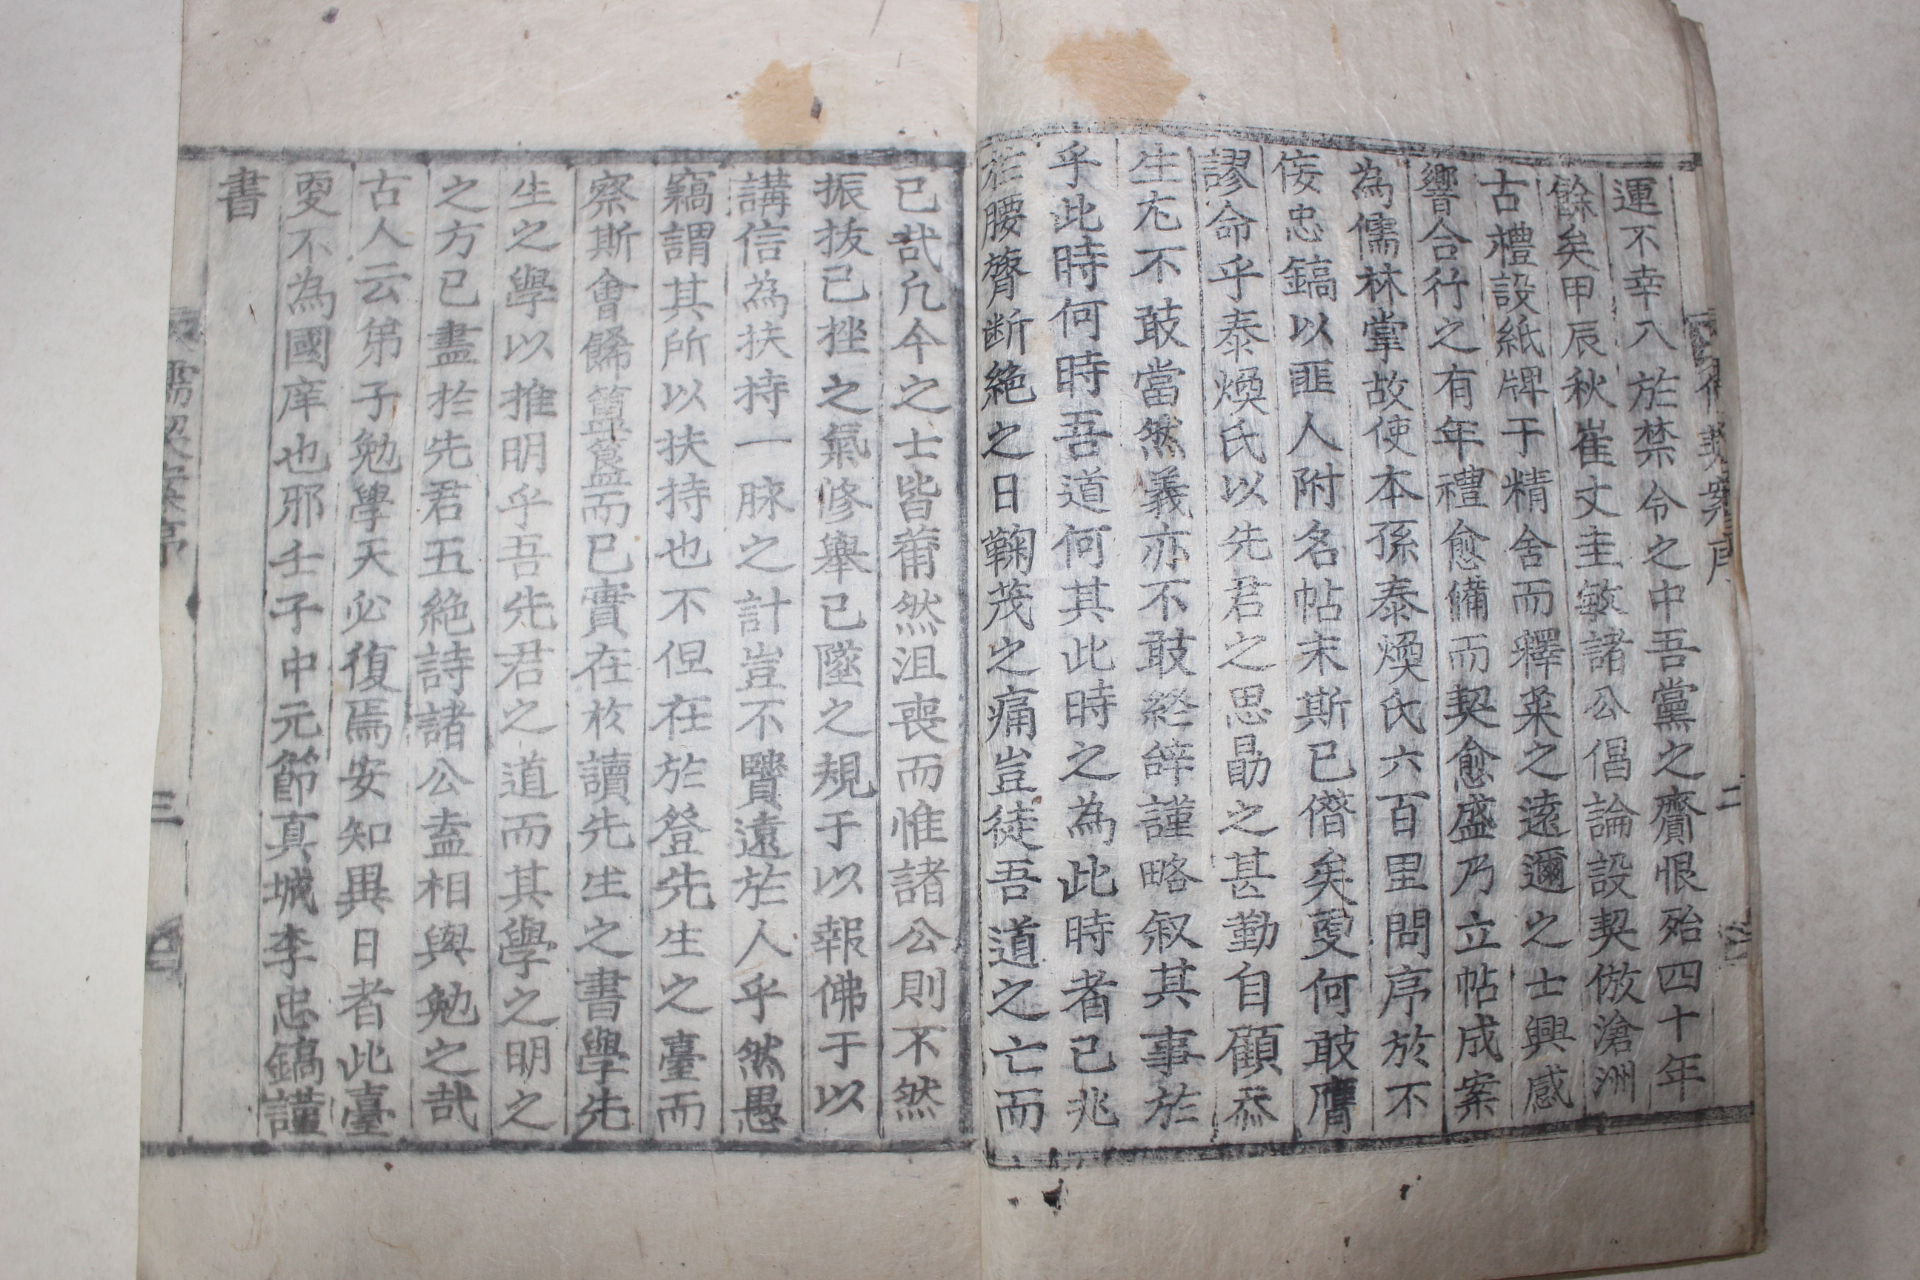 運不幸入於禁令之中吾黨之齎恨殆四十年
餘矣甲辰秋崔丈圭敏諸公倡論設契倣滄洲
古禮設紙牌于精舍而釋菜之遠邇之士興感
響合行之有年禮愈備而契愈盛乃立帖成案
為儒林掌故使本孫泰煥氏六百里問序於不
侫忠鎬以匪人附名帖末斯已僭矣更何敢膺
謬命乎泰煥氏以先君之思勖之甚勤自顧忝
生尤不敢當然義亦不敢終辞謹略叙其事於
乎此時何時吾道何其此時之為此時者已兆
於腰膂断絶之日鞠茂之痛豈徒吾道之亡而
已哉凡今之士皆莆然沮喪而惟諸公則不然
振拔已挫之氣修舉已墜之規于以報佛于以
講信為扶持一脉之計豈不賢遠於人乎然愚
竊謂其所以扶持也不但在於登先生之臺而
察斯會餙簠簋而已實在於讀先生之書學先
生之學以推明乎吾先君之道而其學之明之
之方已盡於先君五絶詩諸公盍相與勉之哉
古人云弟子勉學天必復焉安知異日者此臺
更不為國庠也邪壬子中元節真城李忠鎬謹
書
儒契案序
二
儒契案序
三